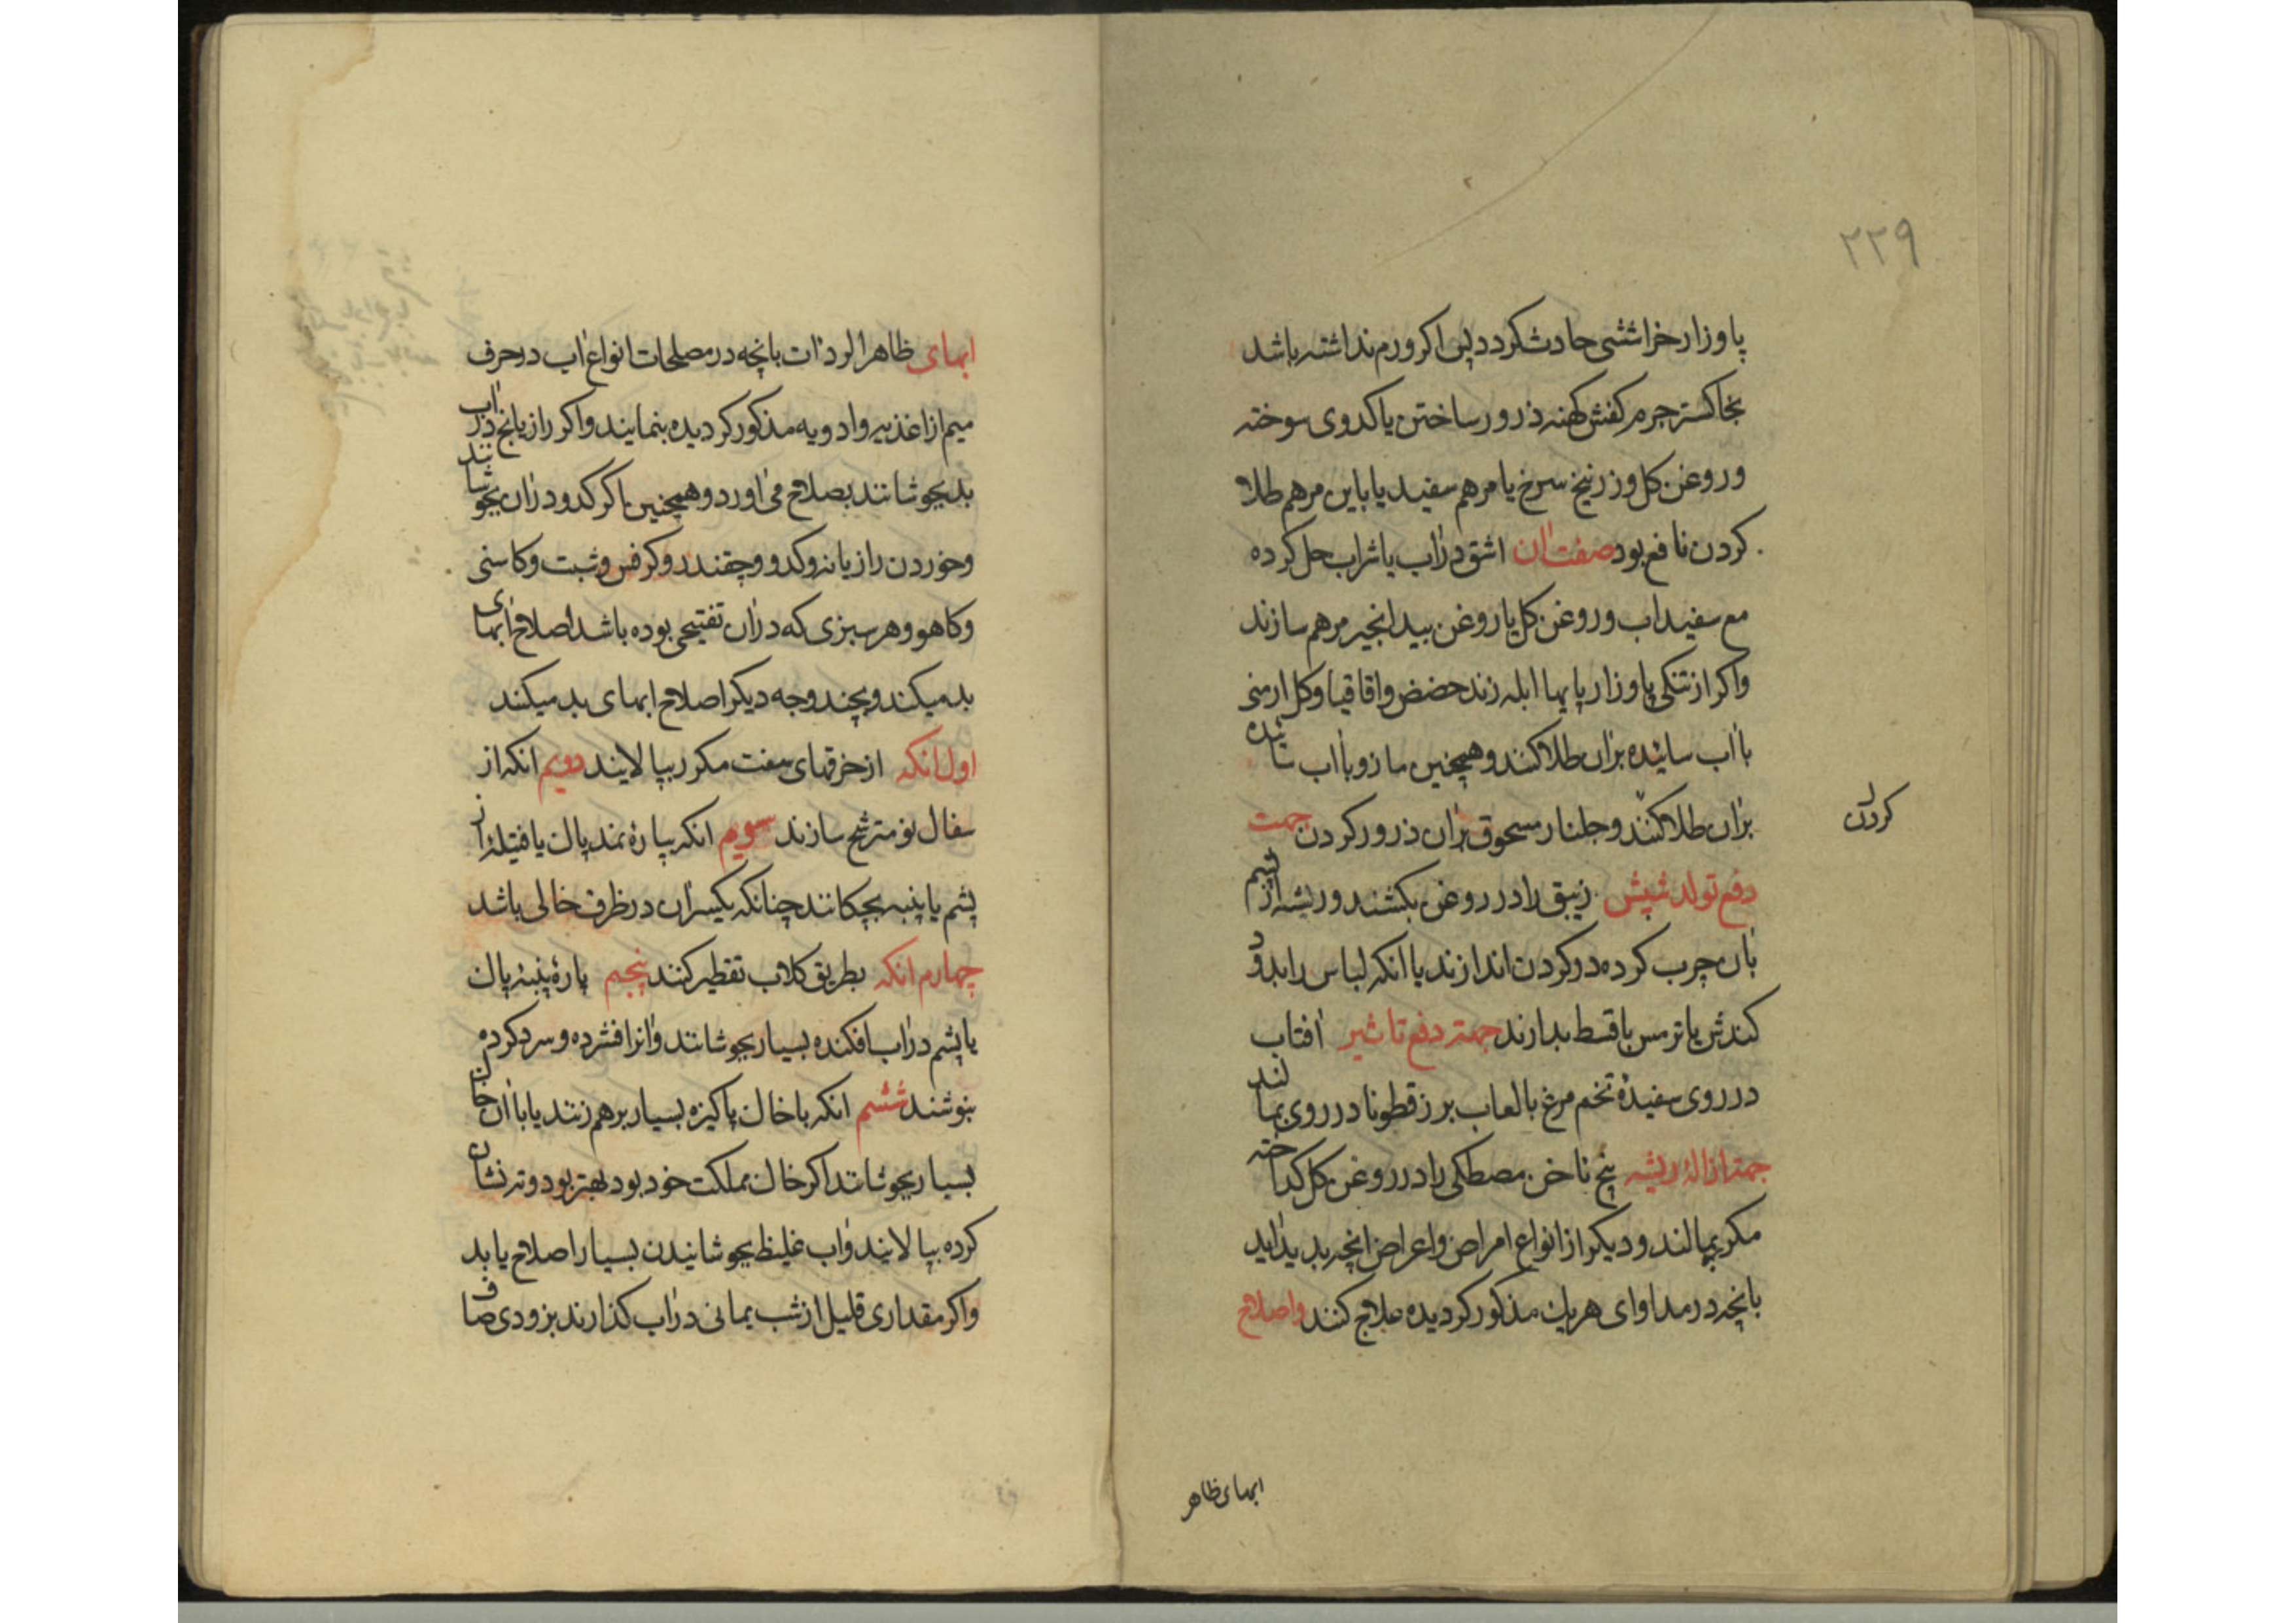 ۲۲۹
پاوزار خراششی حادث کردد پس اکر ورم نداشته باشد
بخاکستر جرم کفش کهنه ذرور ساختن یا کدوی سوخته
وروغن کل وزرنیخ سرخ یا مرهم سفید یا باین مرهم طلا
کردن نافع بود صفت آن اشق درآب یا شراب حل کرده
مع سفیداب وروغن کل یا روغن بیدانجیر مرهم سازند
واکر از تنکی پاوزار پایها ابله زند حضض واقاقیا وکل ارمنی
باآب سائیده برآن طلا کنند وهمچنین مازو باآب سائیده
برآن طلا کنند وجلنار مسحوق برآن ذرور کردن جهت
کردن
دفع تولد شپش زیبق را در روغن بکشند وریشه از پشم
بآن چرب کرده در کردن اندازند یا انکه لباس را بدود
کندش یا ترمس یا قسط بدارند جهته دفع تاثیر آفتاب
در روی سفیدهٔ تخم مرغ بالعاب برزقطونا در روی بمالند
جهته ازالهٔ ریشه پنج ناخن مصطکی را در روغن کل کداخته
مکرر بمالند ودیکر از انواع امراض واعراض انچه بدید آید
بانچه در مداوای هریک مذکور کردیده علاج کنند واصلاح
ابهای ظاهر
ابهای ظاهرا لرداآت بانچه در مصلحات انواع آب در حرف
میم از اغذیه وادویه مذکور کردیده بنمایند واکر رازیانج درآب
بد بجوشانند بصلاح می آورد وهمچنین اکر کدو درآن بجوشانند
وخوردن رازیانه وکدو وچقندر وکرفس وشبت وکاسنی
وکاهو وهر سبزی که درآن تفتیحی بوده باشد اصلاح آبهای
بد میکند وبچند وجه دیکر اصلاح ابهای بد میکند
اول انکه ازخرقهای سفت مکرر بپالایند دویم انکه از
سفال نو مترشح سازند سویم انکه بپارهٔ نمد پاک یا فتیلهٔ از
پشم یا پنبه بچکانند چنانکه یکسرآن در ظرف خالی باشد
چهارم انکه بطریق کلاب تقطیر کنند پنجم پارهٔ پنبهٔ پاک
یا پشم درآب افکنده بسیار بجوشانند وآنرا فشرده وسرد کرده
بنوشند ششم انکه باخاک پاکیزه بسیار برهم زنند یا باآن خاک
بسیار بجوشانند اکر خاک مملکت خود بود بهتر بود وته نشان
کرده بپالایند وآب غلیظ بجوشانیدن بسیار اصلاح یابد
واکر مقداری قلیل از شب یمانی درآب کذارند بزودی صاف